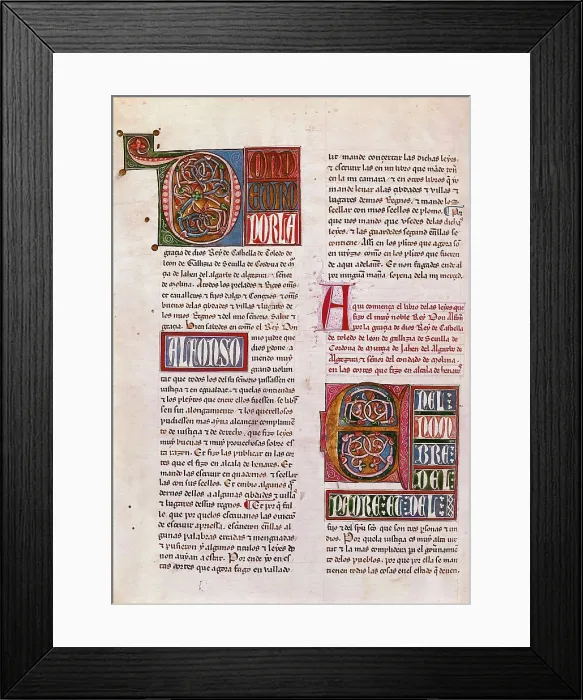 DON
PEDRO
POR LA
gracia de dios Rey de Castiella de Toledo de
leon de Gallizia de Sevilla de Cordova de
cia de Jahen del algarbe de algezira, señor
de molina. Atodos los perlados & Ricos
et cavalleros & fijos dalgo & Conçejos & oms
buenos delas cibdades & villas & lugares de
los mios Regnos & del mio señorio. Salut &
gracia. Bien sabedes en como el Rey Don
ALFONSO
mio padre que
dios perdone. a
viendo muy
grand volun
tat que todos los del su señorio passassen en
iusticia & en egualdat. & quelas contiendas
& los pleytos que entre ellos fuessen. se libra
sen sin alongamiento. & los querellosos
pudiessen mas ayna alcançar complimi
to de iusticia & de derecho. que fizo leyes
muy buenas & muy provechosas sobre es
ta razon. Et fizo las publicar en las cor
tes que el fizo en alcala de henares. Et
mando las escrivir en quadernos & seellar
las con sus seellos. Et enbio algunos
dernos dellos a algunas cibdades & villas
& lugares desus regnos. Et por
le que por quelos escrivanos las ovieron
de escrivir apriessa. escrivieron en ellas al
gunas palabras erradas & menguadas
& pusieron y algunos titulos & leyes do
non avian a estar. Por ende yo en es
tas cortes que agora fago en vallado
lit. mande conçertar las dichas leyes.
& escrivir las en un libro que mande tener
en la mi camara. & en otros libros que yo
mande levar alas cibdades & villas &
lugares delos mios Regnos. & mande los
seellar con mios seellos de plomo.
que vos mando que usedes delas dichas
leyes. & las guardedes segund en ellas se
contiene. Assi en los pleitos que agora son
en iuyzio. como en los pleitos que fueren
de aqui adelante. Et non fagades ende al
por ninguna maña. so pena dela mi merced.
Aqui comiença el libro delas leyes que
fizo el muy noble Rey Don Alfonso
por la gracia de dios Rey de Castiella
de toledo de leon de gallizia de Sevilla de
Cordova de murcia de Jahen del Algarbe de
Algezira. & señor del condado de molina.
en las cortes que fizo en alcala de henares
EN EL
NOM
BRE
DEL
PADRE: ET DEL
fijo & del spu sco que son tres personas & un
dios. Por quela iusticia es muy alta vir
tut & la mas complidera pa el governamie
to delos pueblos. por que por ella se man
tienen todas las cosas en el estado que deven.